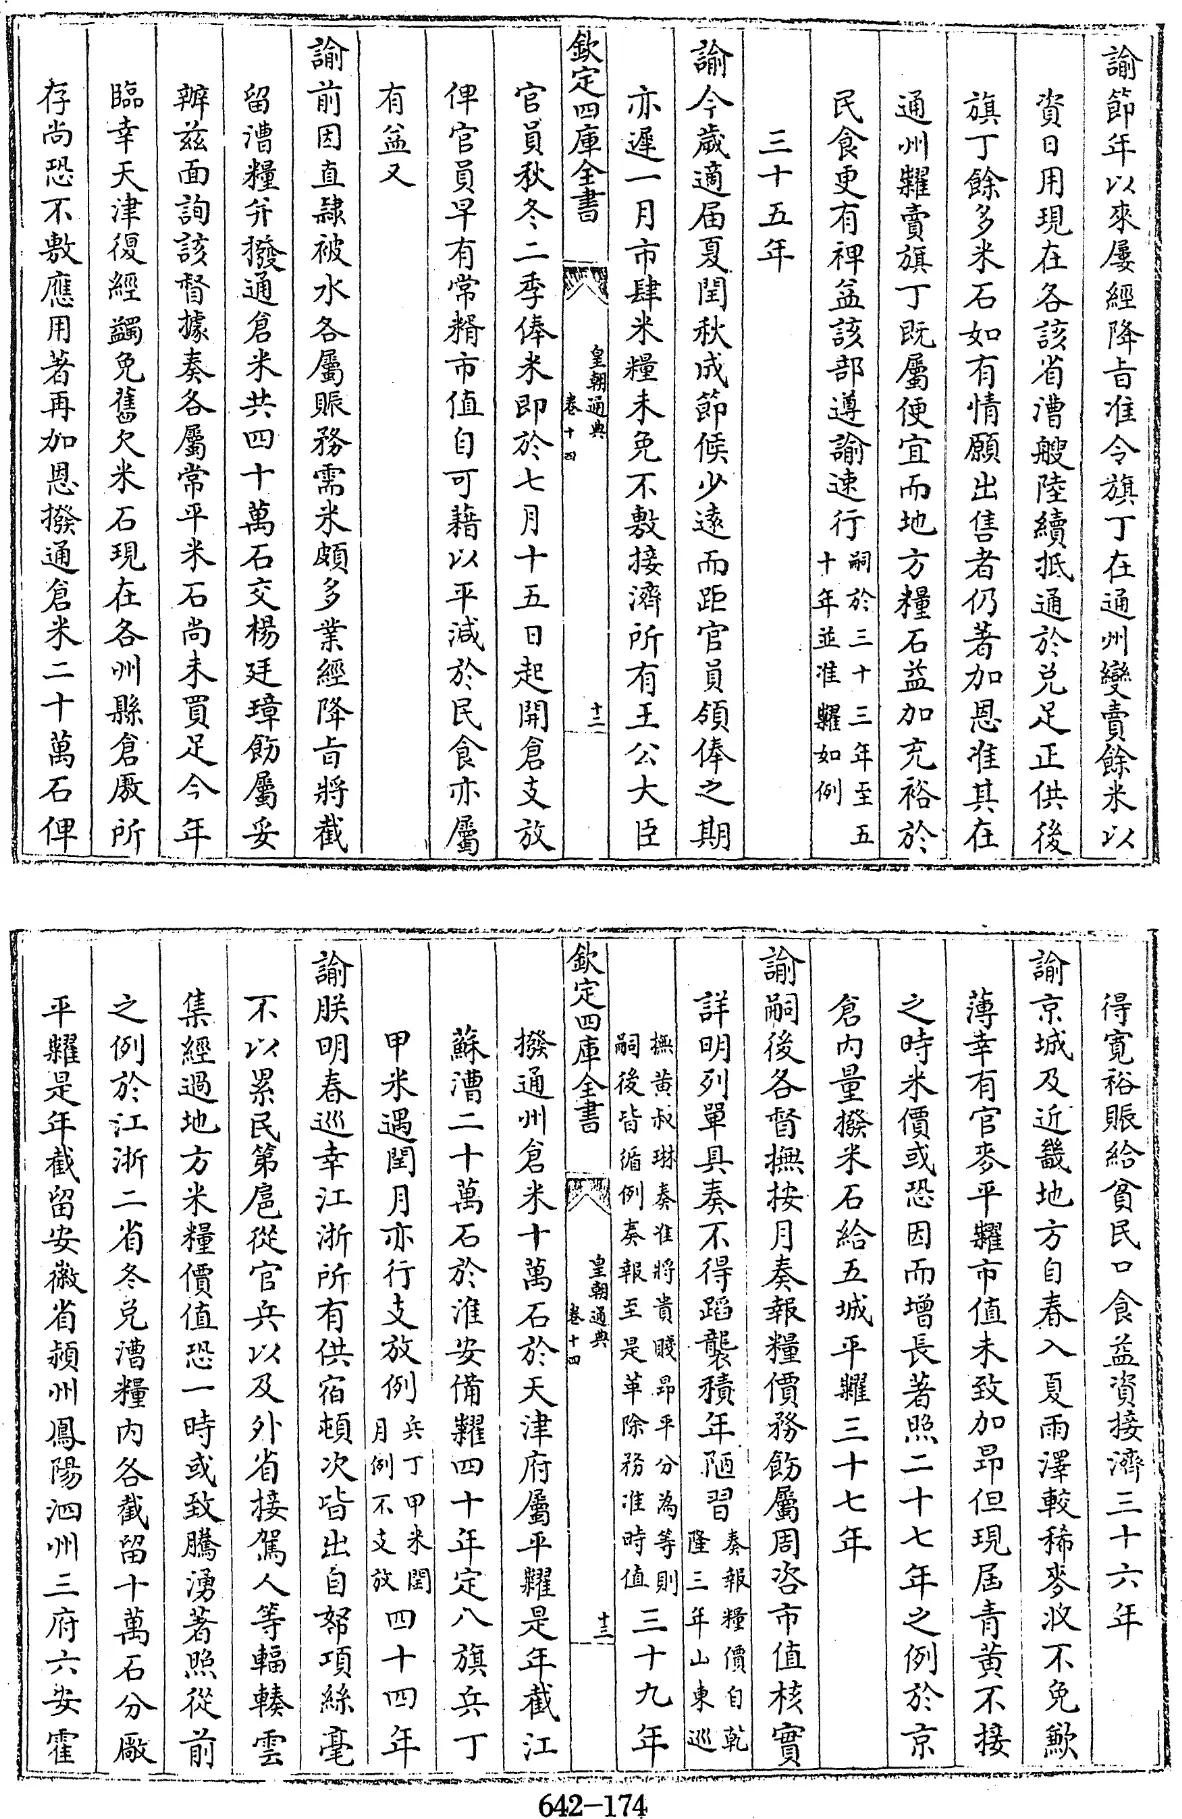 諭節年以來屢經降㫖准令旗丁在通州變賣餘米以
資日用現在各該省漕艘陸續抵通於兑足正供後
旗丁餘多米石如有情願出售者仍著加恩准其在
通州糶賣旗丁既屬便宜而地方糧石益加充裕於
民食更有裨益該部遵諭速行嗣於三十三年至五
十年並准糶如例
三十五年
諭今歲適届夏閏秋成節候少逺而距官員領俸之期
亦遲一月市肆米糧未免不敷接濟所有王公大臣
欽定四庫全書
皇朝通典
卷十四
十二
官員秋冬二季俸米即於七月十五日起開倉支放
俾官員早有常糈市值自可藉以平減於民食亦屬
有益又
諭前因直隸被水各屬賑務需米頗多業經降㫖將截
留漕糧并撥通倉米共四十萬石交楊廷璋飭屬妥
辦兹面詢該督據奏各屬常平米石尚未買足今年
臨幸天津復經蠲免舊欠米石現在各州縣倉廒所
存尚恐不敷應用著再加恩撥通倉米二十萬石俾
得寛裕賑給貧民口食益資接濟三十六年
諭京城及近畿地方自春入夏雨澤較稀麥收不免歉
薄幸有官麥平糶市值未致加昂但現届青黄不接
之時米價或恐因而增長著照二十七年之例於京
倉内量撥米石給五城平糶三十七年
諭嗣後各督撫按月奏報糧價務飭屬周咨市值核實
詳明列單具奏不得蹈襲積年陋習奏報糧價自乾
隆三年山東巡
撫黄叔琳奏准將貴賤昂平分為等則
嗣後皆循例奏報至是革除務准時值三十九年
欽定四庫全書
皇朝通典
卷十四
十三
撥通州倉米十萬石於天津府屬平糶是年截江
蘇漕二十萬石於淮安備糶四十年定八旗兵丁
甲米遇閏月亦行支放例兵丁甲米閏
月例不支放四十四年
諭朕明春巡幸江浙所有供宿頓次皆出自帑項絲毫
不以累民第扈從官兵以及外省接駕人等輻輳雲
集經過地方米糧價值恐一時或致騰湧著照從前
之例於江浙二省冬兑漕糧内各截留十萬石分廠
平糶是年截留安徽省潁州鳳陽泗州三府六安霍
642-174